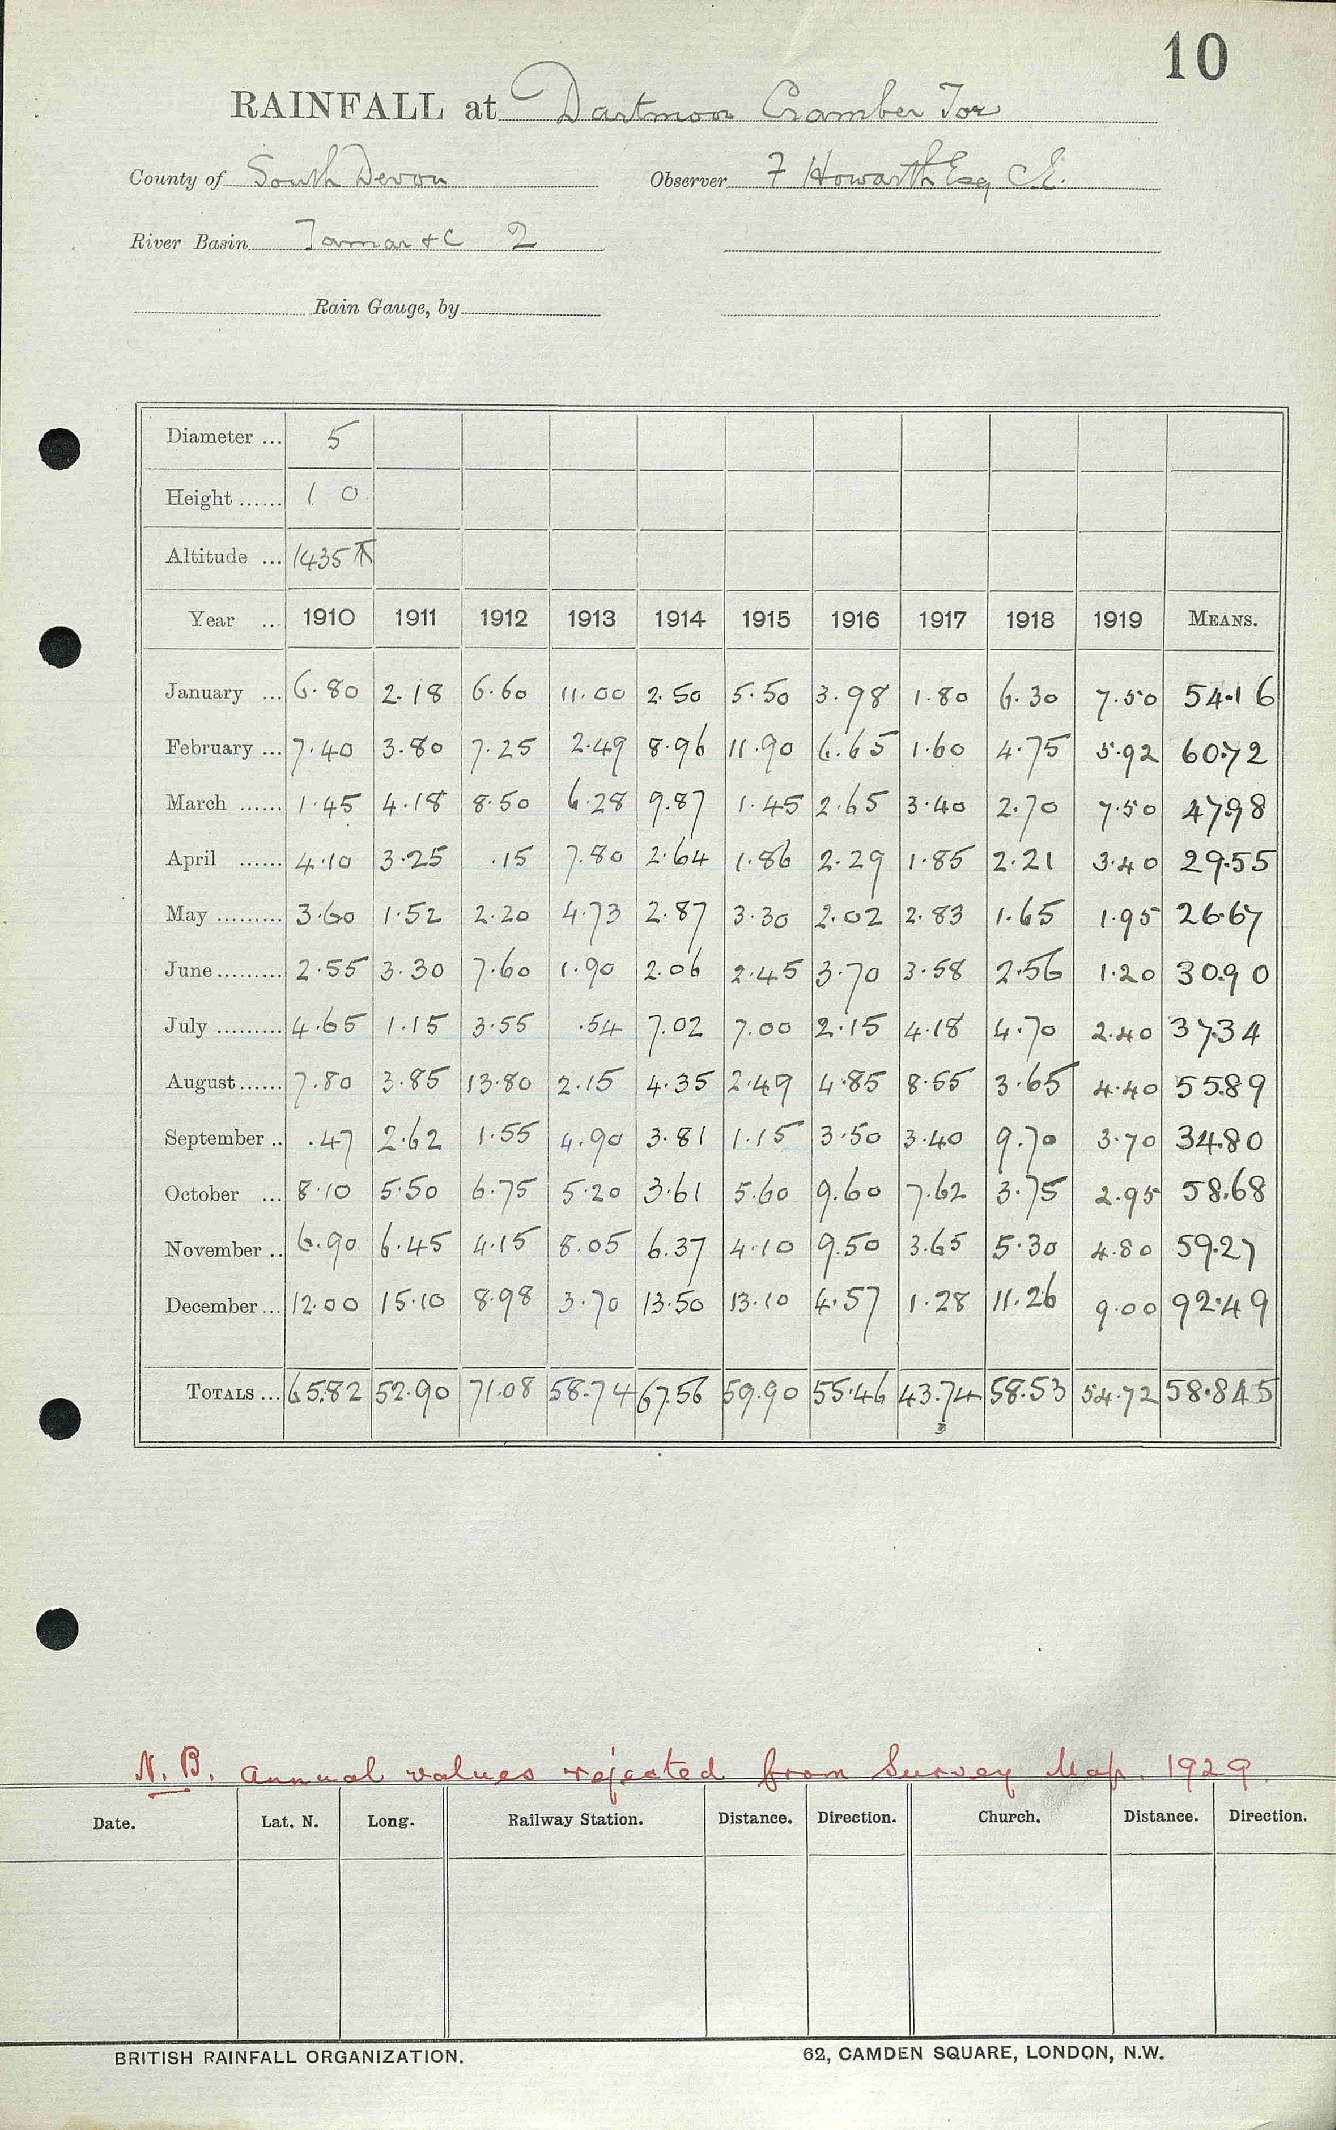 10
RAINFALL at Dartmoor Cramber Tor
County of South Devon Observer F Howarth Esq C.E.
River Basin Tamar &c 2
Rain Gauge, by
Diameter ... 5
Height ...... 1 0
Altitude ... 1435
Year .. 1910 1911 1912 1913 1914 1915 1916 1917 1918 1919 MEANS.
January ... 6.80 2.18 6.60 11.00 2.50 5.50 3.98 1.80 6.30 7.50 54.16
February ... 7.40 3.80 7.25 2.49 8.96 11.90 6.65 1.60 4.75 5.92 60.72
March ...... 1.45 4.18 8.50 6.28 9.87 1.45 2.65 3.40 2.70 7.50 47.98
April ...... 4.10 3.25 .15 7.80 2.64 1.86 2.29 1.85 2.21 3.40 29.55
May ......... 3.60 1.52 2.20 4.73 2.87 3.30 2.02 2.83 1.65 1.95 26.67
June ......... 2.55 3.30 7.60 1.90 2.06 2.45 3.70 3.58 2.56 1.20 30.90
July ......... 4.65 1.15 3.55 .54 7.02 7.00 2.15 4.18 4.70 2.40 37.34
August ...... 7.80 3.85 13.80 2.15 4.35 2.49 4.85 8.55 3.65 4.40 55.89
September .. .47 2.62 1.55 4.90 3.81 1.15 3.50 3.40 9.70 3.70 34.80
October ... 8.10 5.50 6.75 5.20 3.61 5.60 9.60 7.62 3.75 2.95 58.68
November .. 6.90 6.45 4.15 8.05 6.37 4.10 9.50 3.65 5.30 4.80 59.27
December ... 12.00 15.10 8.98 3.70 13.50 13.10 4.57 1.28 11.26 9.00 92.49
TOTALS ... 65.82 52.90 71.08 58.74 67.56 59.90 55.46 43.74 58.53 54.72 58.845
3
N.B. Annual values rejected from Survey Map. 1929.
Date. Lat. N. Long. Railway Station. Distance. Direction. Church. Distance. Direction.
BRITISH RAINFALL ORGANIZATION. 62, CAMDEN SQUARE, LONDON, N.W.